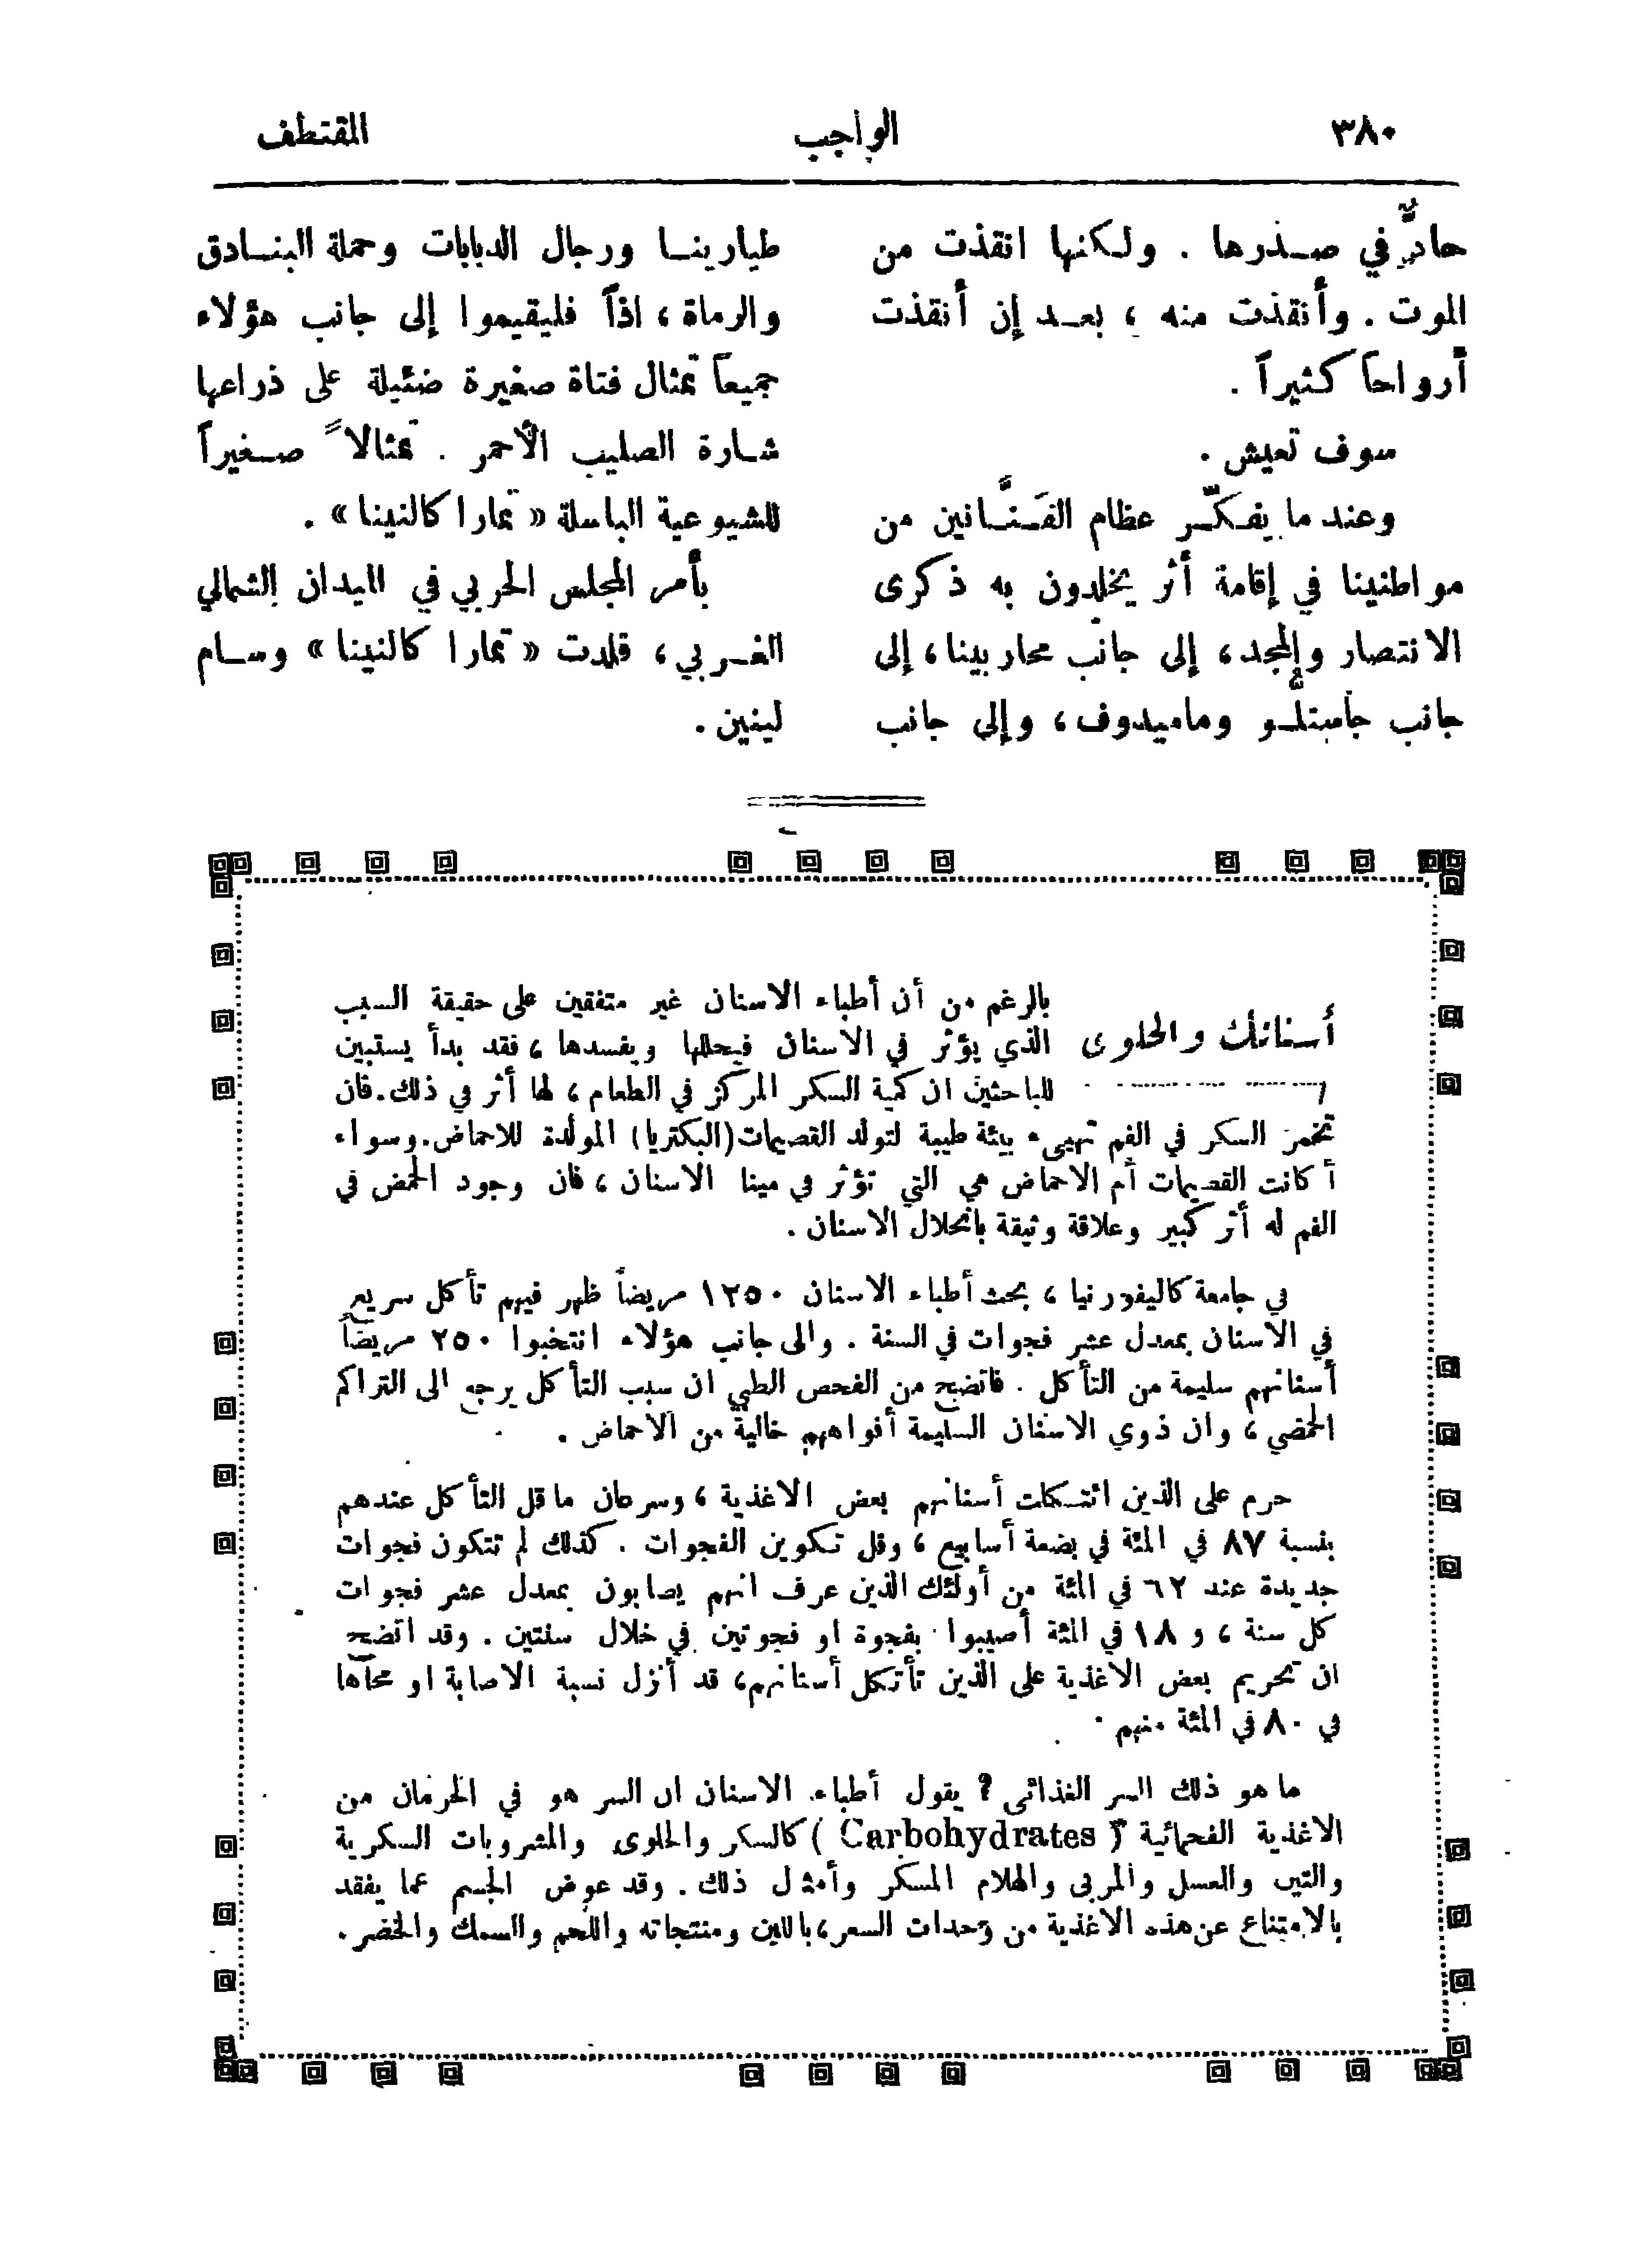 ٣٨٠
الواجب
المقتطف
حادٍّ في صدرها . ولكنها انقذت من
الموت . وأنقذت منه ، بعد إن أنقذت
أرواحاً كثيراً .
سوف تعيش .
وعند ما يفكّر عظام الفَنَّانين من
مواطنينا في إقامة أثر يخلدون به ذكرى
الانتصار والمجد ، إلى جانب محاربينا ، إلى
جانب جاستلُّو وماميدوف ، وإلى جانب
طيارينا ورجال الدبابات وحملة البنادق
والرماة ، اذاً فليقيموا إلى جانب هؤلاء
جميعاً تمثال فتاة صغيرة ضئيلة على ذراعها
شارة الصليب الأحمر . تمثالاً صغيراً
للشيوعية الباسلة « تمارا كالنينا » .
بأمر المجلس الحربي في الميدان الشمالي
الغربي ، قلدت « تمارا كالنينا » وسام
لينين .
أسنانك والحلوى
بالرغم من أن أطباء الاسنان غير متفقين على حقيقة السبب
الذي يؤثر في الاسنان فيحللها ويفسدها ، فقد بدأ يستبين
للباحثين ان كمية السكر المركز في الطعام ، لها أثر في ذلك . فان
تخمر السكر في الفم تهيىء بيئة طيبة لتولد القصيمات (البكتريا) المولدة للاحماض . وسواء
أكانت القصيمات أم الاحماض هي التي تؤثر في مينا الاسنان ، فان وجود الحمض في
الفم له أثر كبير وعلاقة وثيقة بانحلال الاسنان .
في جامعة كاليفورنيا ، بحث أطباء الاسنان ١٢٥٠ مريضاً ظهر فيهم تأكل سريع
في الاسنان بمعدل عشر فجوات في السنة . والى جانب هؤلاء انتخبوا ٢٥٠ مريضاً
أسنانهم سليمة من التأكل . فاتضح من الفحص الطبي ان سبب التأكل يرجع الى التراكم
الحمضي ، وان ذوي الاسنان السليمة أفواههم خالية من الاحماض .
حرم على الذين ائتكلت أسنانهم بعض الاغذية ، وسرعان ما قل التأكل عندهم
بنسبة ٨٧ في المئة في بضعة أسابيع ، وقل تكوين الفجوات . كذلك لم تتكون فجوات
جديدة عند ٦٢ في المئة من أولئك الذين عرف انهم يصابون بمعدل عشر فجوات
كل سنة ، و ١٨ في المئة أصيبوا بفجوة او فجوتين في خلال سنتين . وقد اتضح
ان تحريم بعض الاغذية على الذين تأتكل أسنانهم ، قد أنزل نسبة الاصابة او محاها
في ٨٠ في المئة منهم .
ما هو ذلك السر الغذائي ? يقول أطباء الاسنان ان السر هو في الحرمان من
الاغذية الفحمائية ( Carbohydrates ) كالسكر والحلوى والمشروبات السكرية
والتين والعسل والمربى والهلام المسكر وأمثال ذلك . وقد عوض الجسم عما يفقد
بالامتناع عن هذه الاغذية من وحدات السعر ، باللبن ومنتجاته واللحم والسمك والخضر .